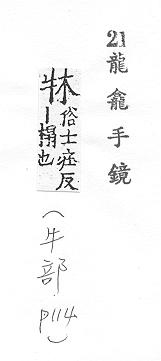 21龍龕手鏡
俗士疰反
丨榻也
(牛部 P114)